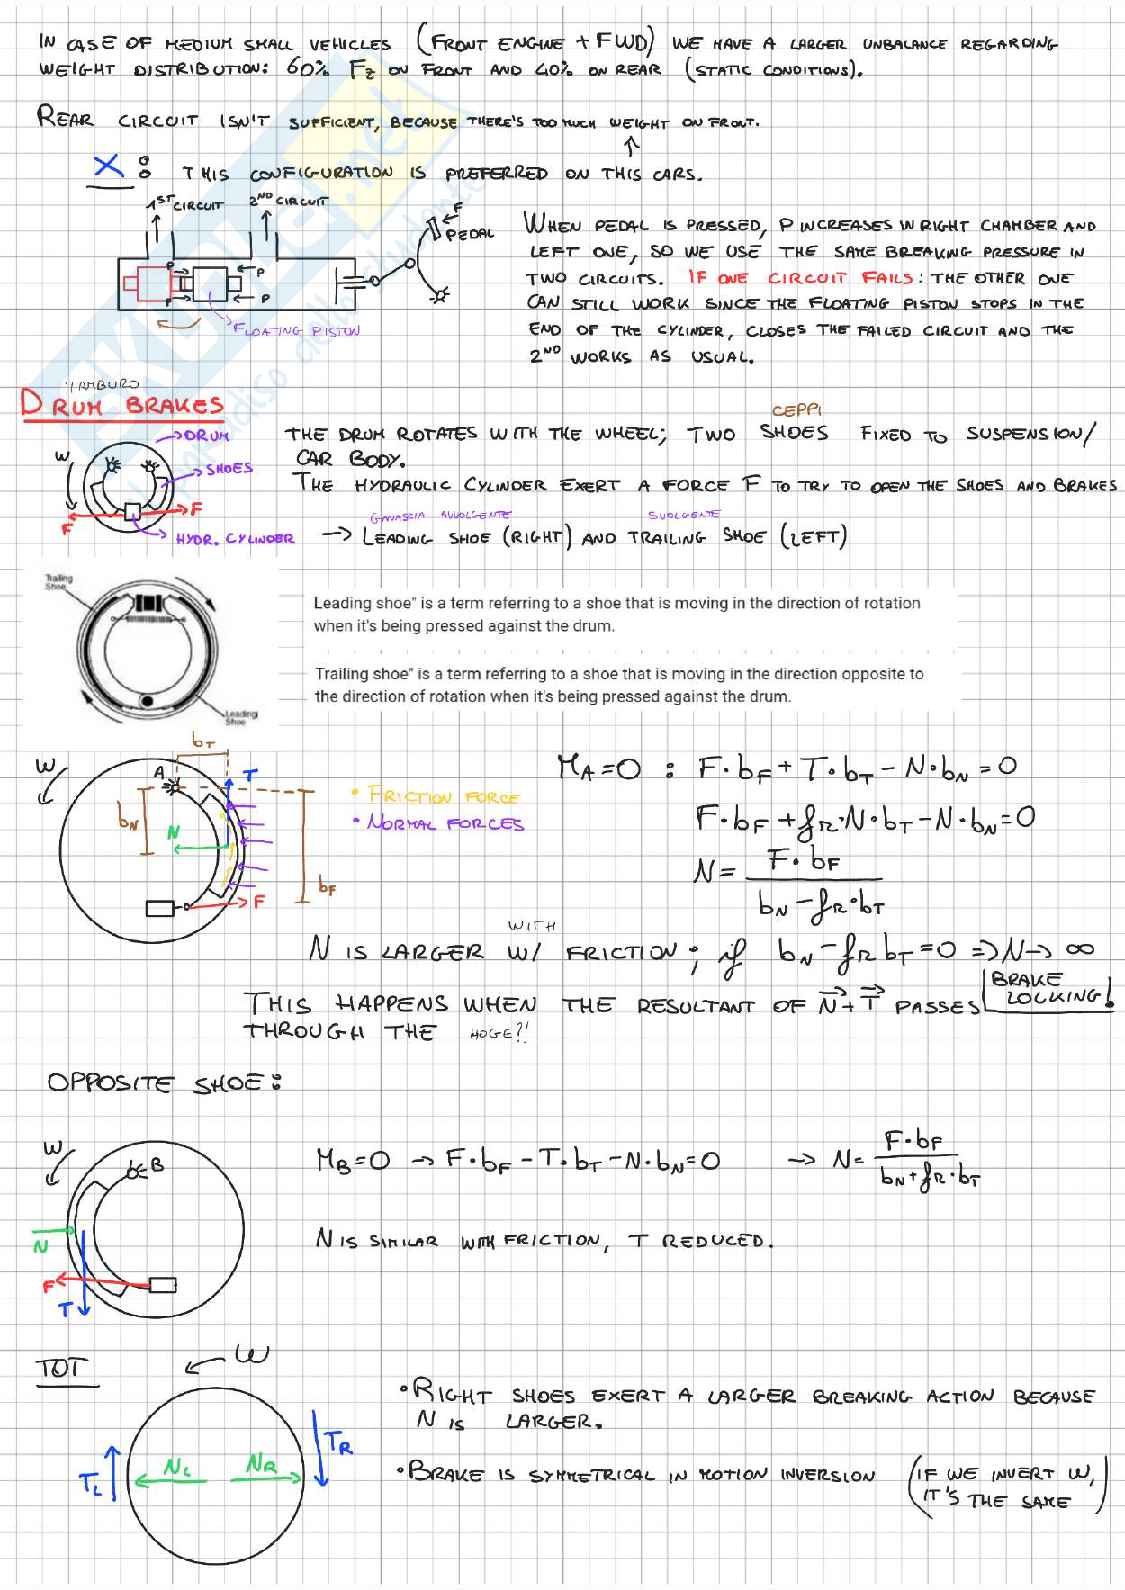 IN CASE OF MEDIUM SMALL VEHICLES (FRONT ENGINE + FWD) WE HAVE A LARGER UNBALANCE REGARDING
WEIGHT DISTRIBUTION: 60% Fz ON FRONT AND 40% ON REAR (STATIC CONDITIONS).
REAR CIRCUIT ISN'T SUFFICIENT, BECAUSE THERE'S TOO MUCH WEIGHT ON FRONT.
X: THIS CONFIGURATION IS PREFERRED ON THIS CARS.
1ST CIRCUIT 2ND CIRCUIT
F
PEDAL
P P
P P
FLOATING PISTON
WHEN PEDAL IS PRESSED, P INCREASES IN RIGHT CHAMBER AND
LEFT ONE, SO WE USE THE SAME BREAKING PRESSURE IN
TWO CIRCUITS. IF ONE CIRCUIT FAILS: THE OTHER ONE
CAN STILL WORK SINCE THE FLOATING PISTON STOPS IN THE
END OF THE CYLINDER, CLOSES THE FAILED CIRCUIT AND THE
2ND WORKS AS USUAL.
TAMBURO
DRUM BRAKES
CEPPI
THE DRUM ROTATES WITH THE WHEEL; TWO SHOES FIXED TO SUSPENSION/
CAR BODY.
THE HYDRAULIC CYLINDER EXERT A FORCE F TO TRY TO OPEN THE SHOES AND BRAKES
GANASCIA AVVOLGENTE SVOLGENTE
→ LEADING SHOE (RIGHT) AND TRAILING SHOE (LEFT)
W
DRUM
SHOES
F F
HYDR. CYLINDER
Trailing
Shoe
Leading
Shoe
Leading shoe" is a term referring to a shoe that is moving in the direction of rotation
when it's being pressed against the drum.
Trailing shoe" is a term referring to a shoe that is moving in the direction opposite to
the direction of rotation when it's being pressed against the drum.
W
A
bT
T
bN
N
bF
F
• FRICTION FORCE
• NORMAL FORCES
MA=0 : F·bF + T·bT - N·bN = 0
F·bF + fR·N·bT - N·bN = 0
N = F·bF / bN - fR·bT
WITH
N IS LARGER W/ FRICTION; if bN - fR bT = 0 => N → ∞
BRAKE
LOCKING!
THIS HAPPENS WHEN THE RESULTANT OF N + T PASSES
THROUGH THE HOGE?!
OPPOSITE SHOE:
W
B
N
F
T
MB=0 → F·bF - T·bT - N·bN = 0 → N = F·bF / bN + fR·bT
N IS SIMILAR WITH FRICTION, T REDUCED.
TOT
W
TL NL NR TR
• RIGHT SHOES EXERT A LARGER BREAKING ACTION BECAUSE
N IS LARGER.
• BRAKE IS SYMMETRICAL IN MOTION INVERSION (IF WE INVERT W,
IT'S THE SAME)